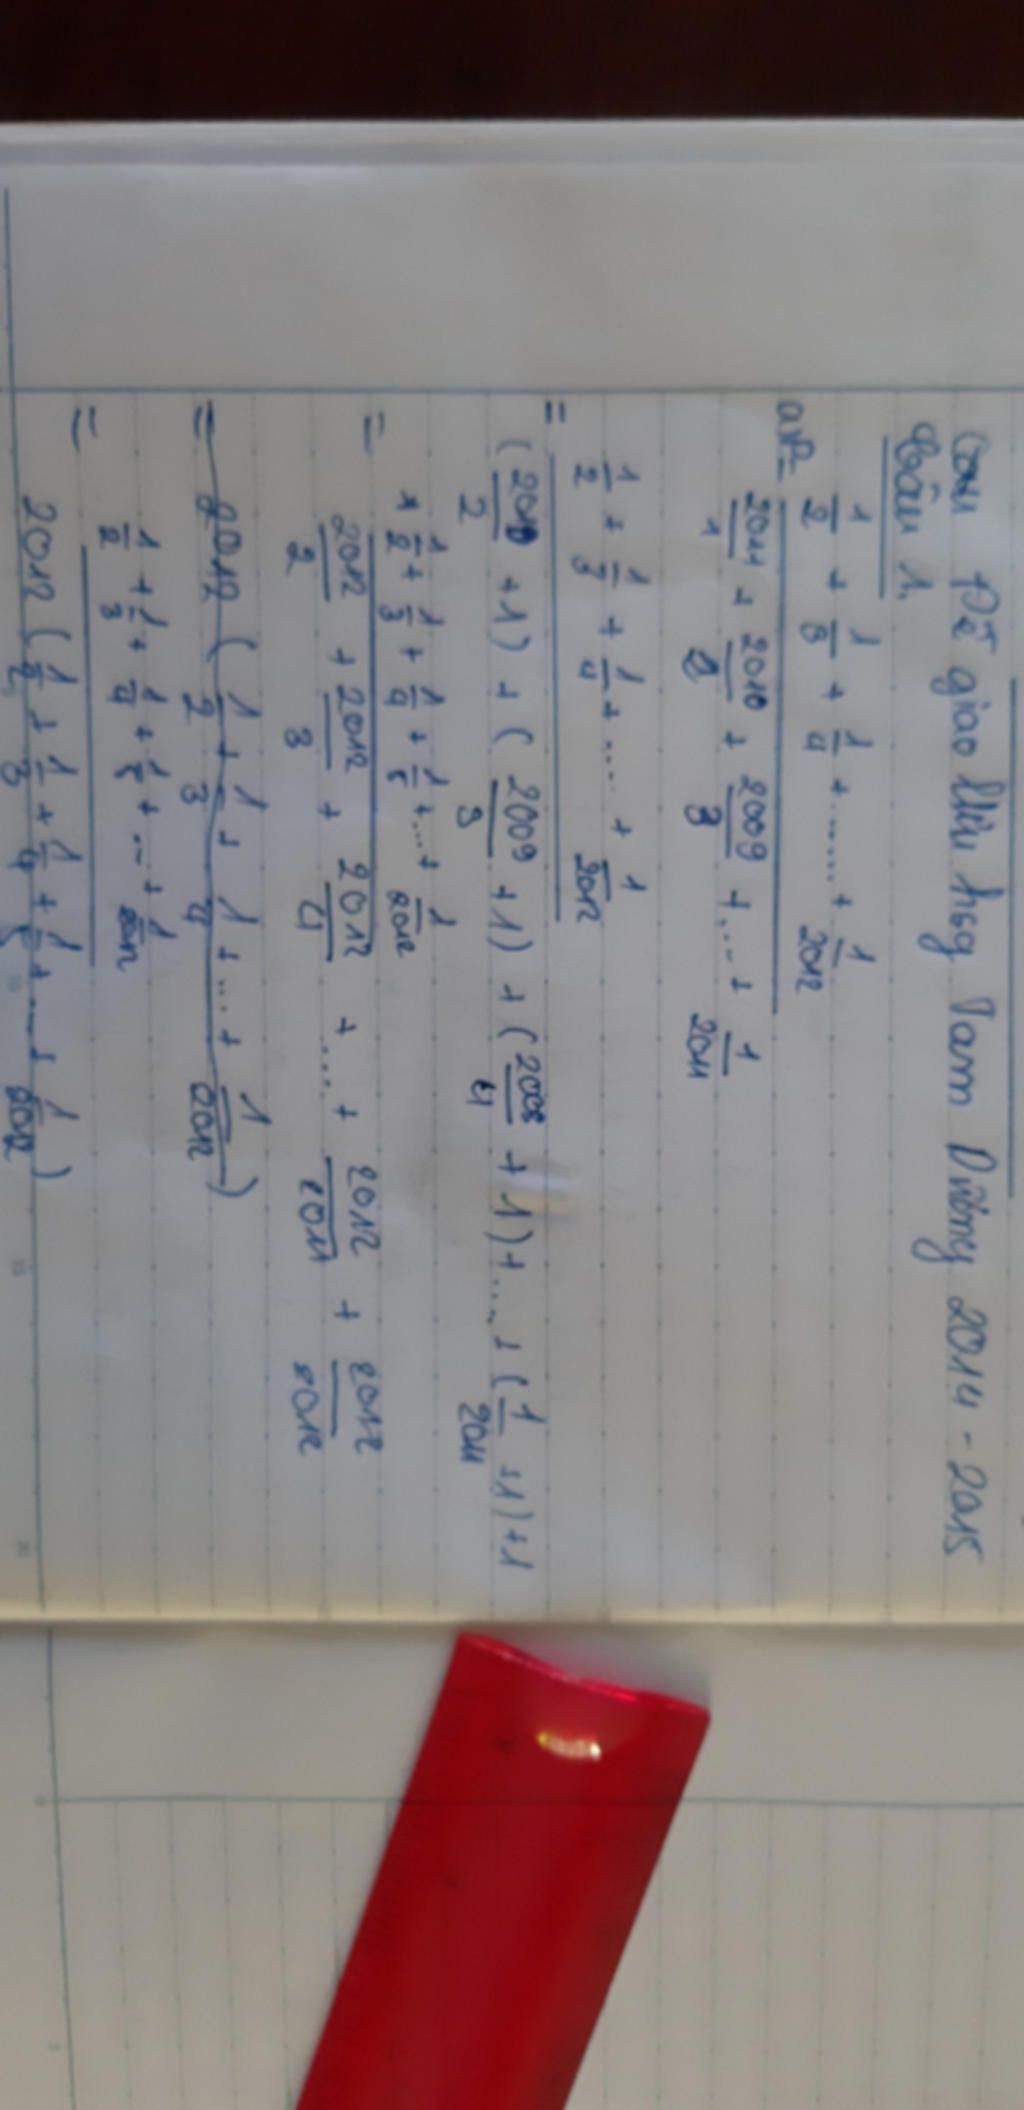 giao lưu hsg Tam Dương 2014 - 2015
1.
1/2 + 1/3 + 1/4 + ..... + 1/2012
2011/1 + 2010/2 + 2009/3 + ... + 1/2011
= 1/2 + 1/3 + 1/4 + ..... + 1/2012
(2010/2 + 1) + (2009/3 + 1) + (2008/4 + 1) + .... + (1/2011 + 1) + 1
= 1/2 + 1/3 + 1/4 + 1/5 + ... + 1/2012
2012/2 + 2012/3 + 2012/4 + .... + 2012/2011 + 2012/2012
= 2012 (1/2 + 1/3 + 1/4 + ... + 1/2012)
= 1/2 + 1/3 + 1/4 + 1/5 + ... + 1/2012
2012 (1/2 + 1/3 + 1/4 + 1/5 + ... + 1/2012)